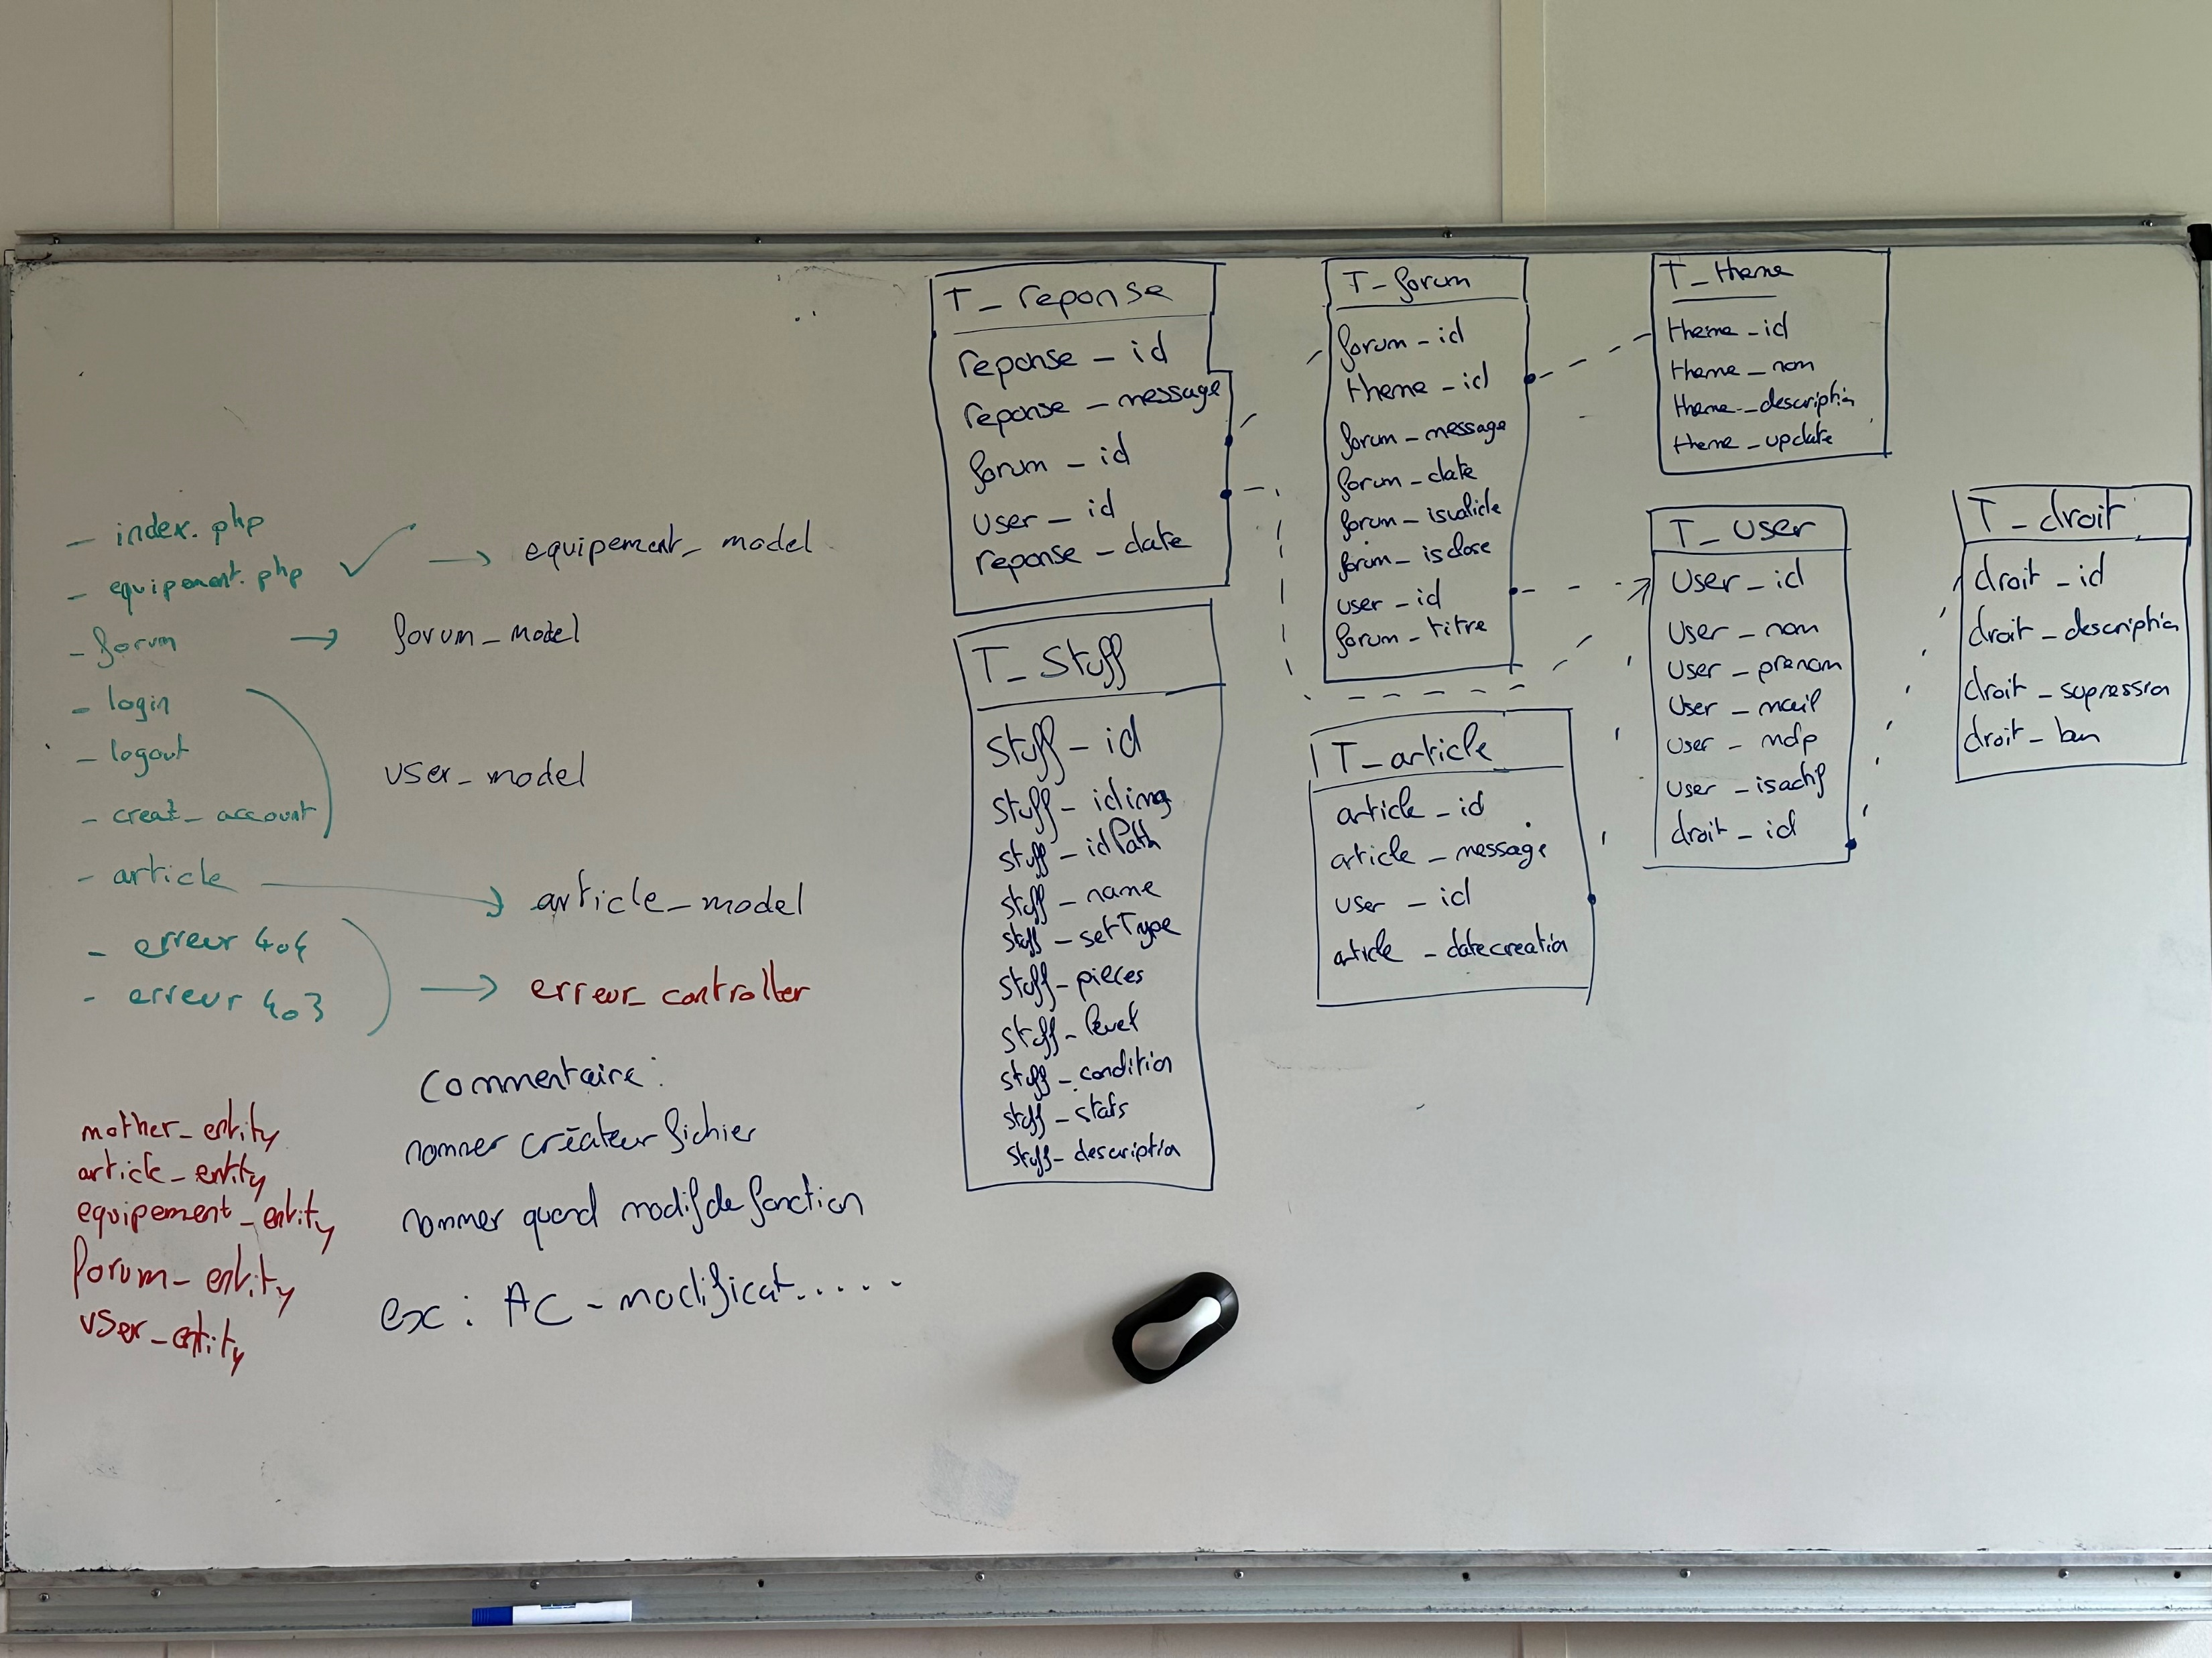 - index.php
- equipement.php → equipement_model
- forum → forum_model
- login
- logout
user_model
- creat_account
- article → article_model
- erreur 404
- erreur 403
→ erreur_controller
mother_entity
article_entity
equipement_entity
forum_entity
user_entity
Commentaire :
nommer créateur fichier
nommer quand modif de fonction
ex : AC - modificat.....
T_reponse
reponse_id
reponse_message
forum_id
user_id
reponse_date
T_Stuff
stuff_id
stuff_idimg
stuff_idPath
stuff_name
stuff_setType
stuff_pieces
stuff_level
stuff_condition
stuff_stats
stuff_description
T_forum
forum_id
theme_id
forum_message
forum_date
forum_isvalide
forum_isclose
user_id
forum_titre
T_article
article_id
article_message
user_id
article_datecreation
T_theme
theme_id
theme_nom
theme_description
theme_update
T_user
user_id
user_nom
user_prenom
user_mail
user_mdp
user_isactif
droit_id
T_droit
droit_id
droit_description
droit_supression
droit_ban